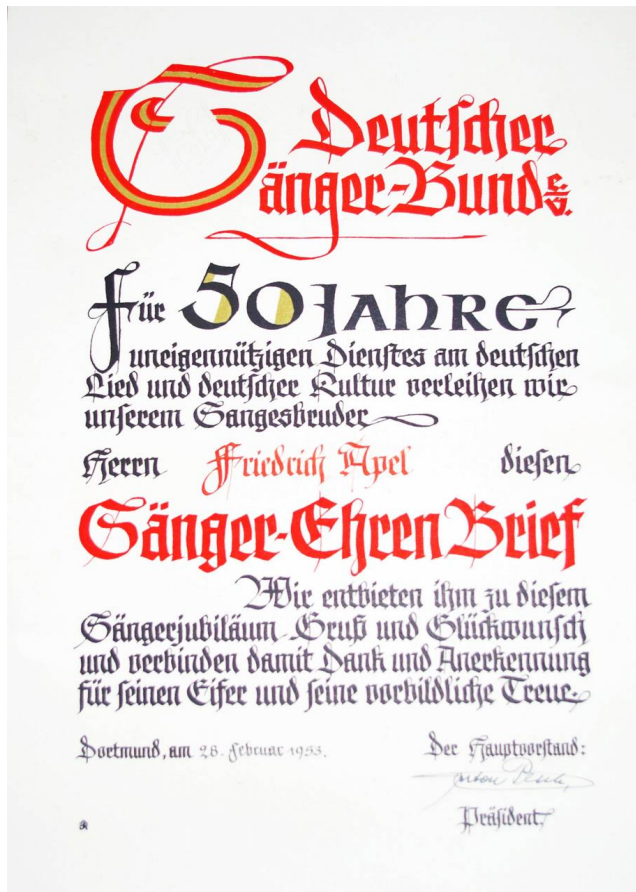 Deutscher
Sänger-Bund e.V.
Für 50 JAHRE
uneigennützigen Dienstes am deutschen
Lied und deutscher Kultur verleihen wir
unserem Sangesbruder
Herrn Friedrich Apel diesen
Sänger-Ehren Brief
Wir entbieten ihm zu diesem
Sängerjubiläum Gruß und Glückwunsch
und verbinden damit Dank und Anerkennung
für seinen Eifer und seine vorbildliche Treue.
Dortmund, am 28. Februar 1953.
Der Hauptvorstand:
Präsident